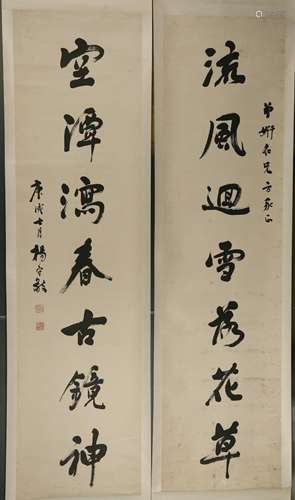 流風迴雪落花草
兄方家正
空潭瀉春古鏡神
庚戌七月楊守敬